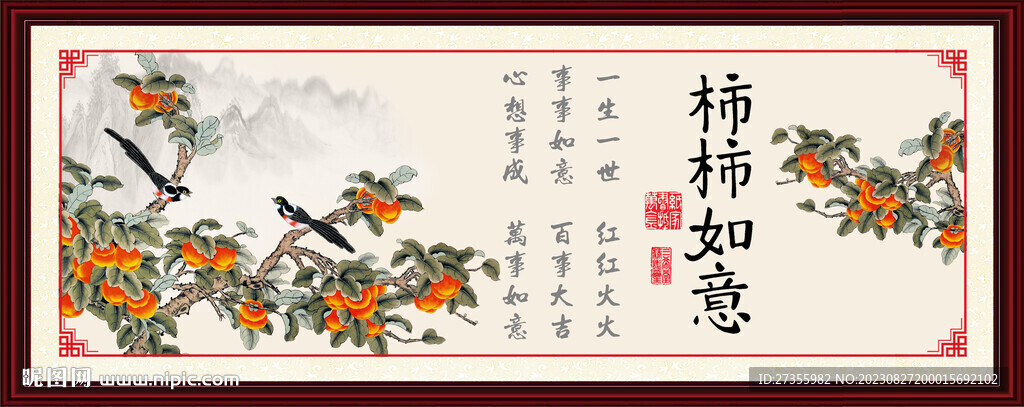 柿柿如意
一生一世 红红火火
事事如意 百事大吉
心想事成 萬事如意
昵图网 www.nipic.com
ID:27355982 NO:20230827200015692102